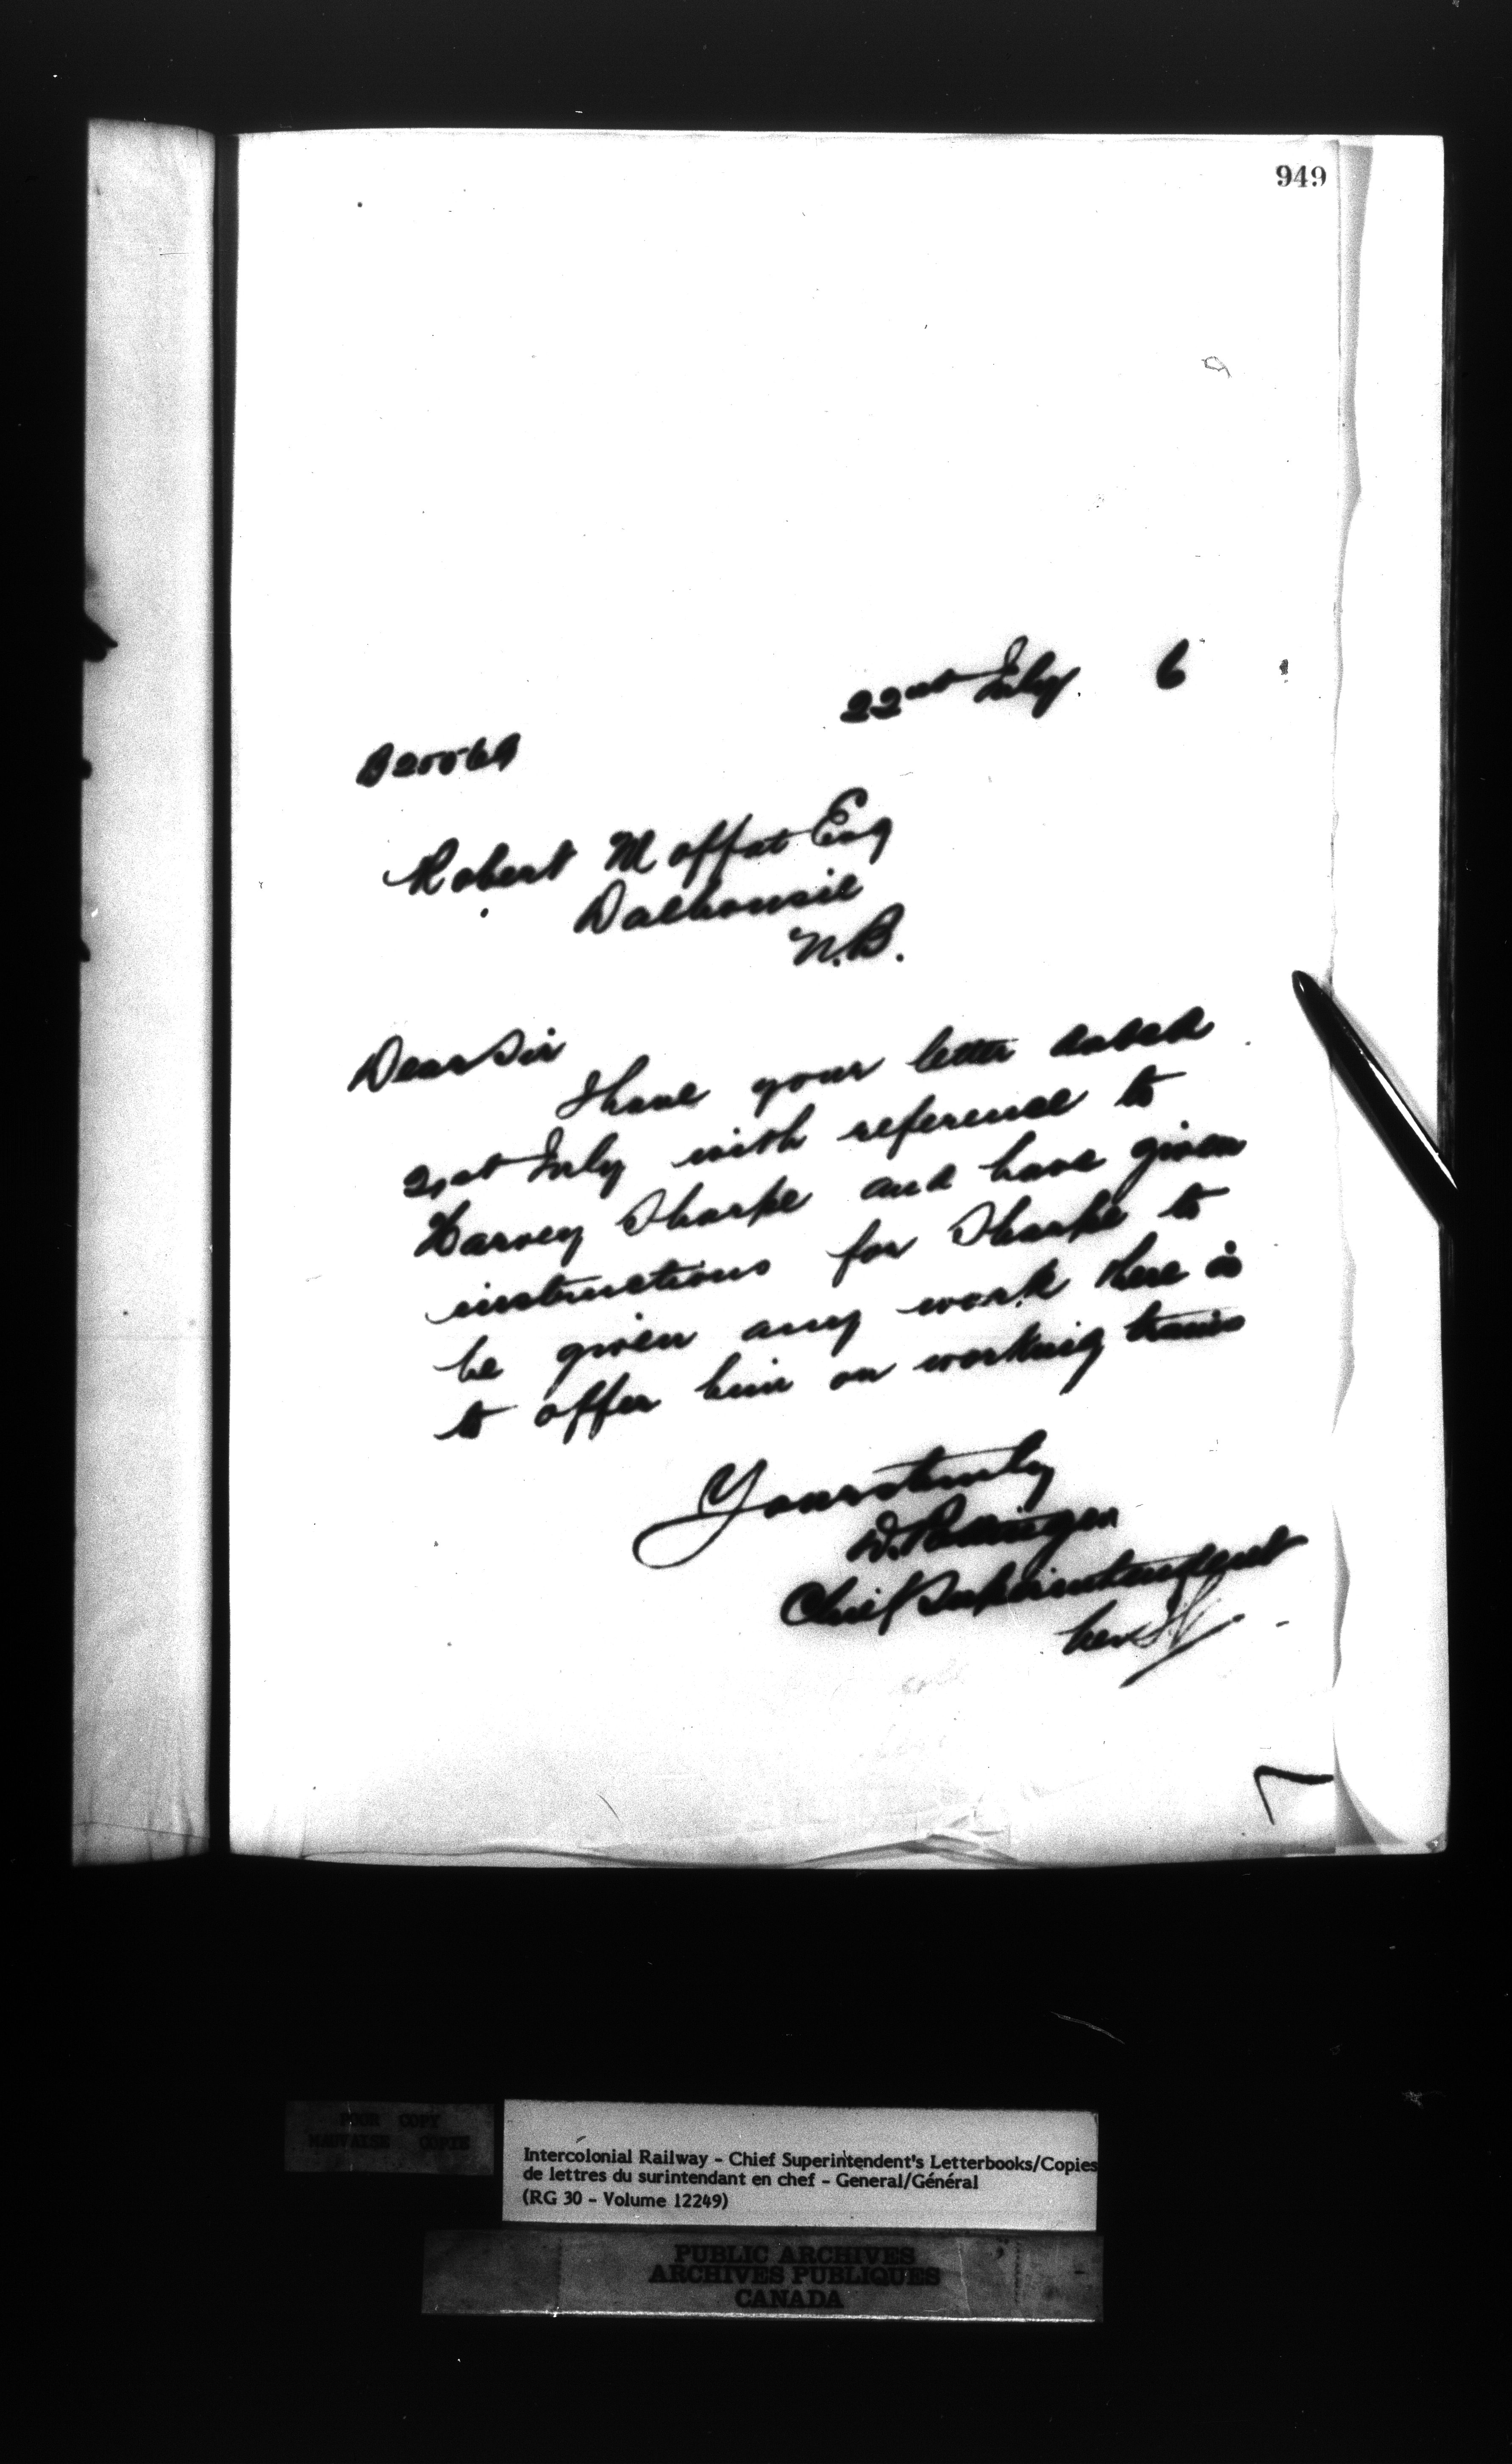 949
22nd July 6
B 20069
Robert Moffat Esq
Dalhousie
N.B.
Dear Sir
I have your letter dated
21st July with reference to
Harvey Tharpe and have given
instructions for Tharpe to
be given any work there is
to offer him on working trains
Yours truly
D. Pottinger
Chief Superintendent
Per
POOR COPY
MAUVAISE COPIE
Intercolonial Railway - Chief Superintendent's Letterbooks/Copies
de lettres du surintendant en chef - General/Général
(RG 30 - Volume 12249)
PUBLIC ARCHIVES
ARCHIVES PUBLIQUES
CANADA